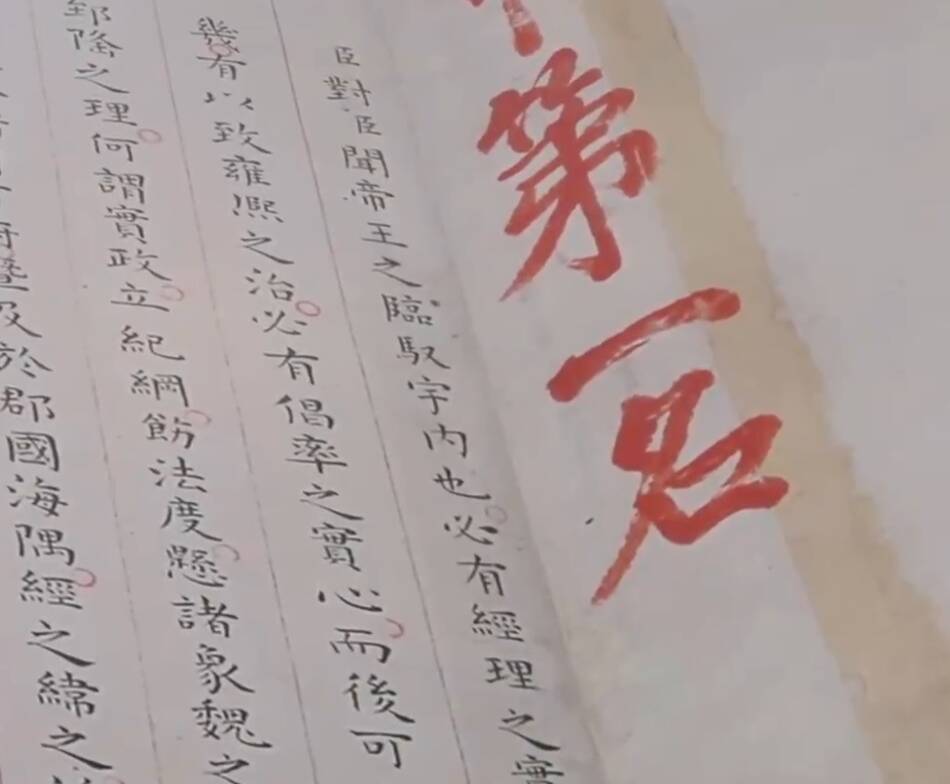 第一名
臣對臣聞帝王之臨馭宇內也必有經理之實
幾有以致雍熙之治必有倡率之實心而後可
郅隆之理何謂實政立紀綱飭法度懸諸象魏之
府暨及於郡國海隅經之緯之